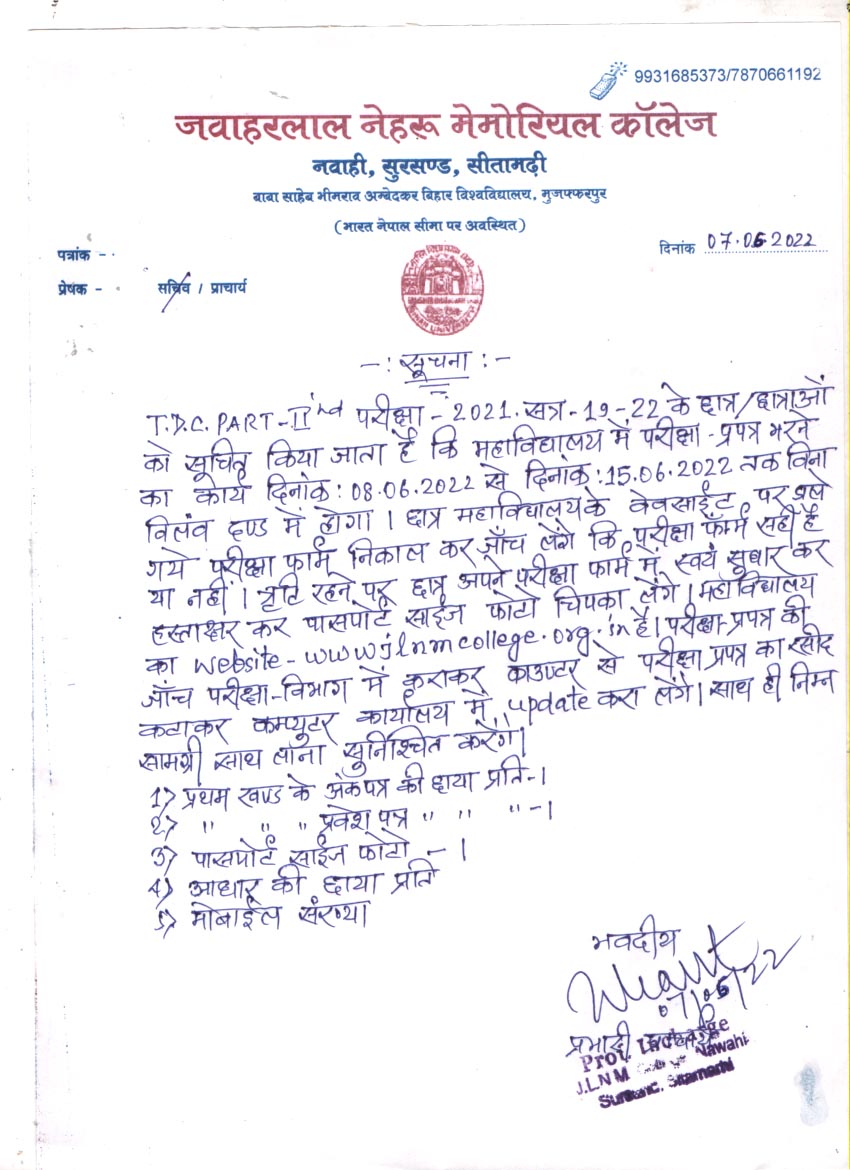 9931685373/7870661192
जवाहरलाल नेहरू मेमोरियल कॉलेज
नवाही, सुरसण्ड, सीतामढ़ी
बाबा साहेब भीमराव अम्बेदकर बिहार विश्वविद्यालय, मुजफ्फरपुर
(भारत नेपाल सीमा पर अवस्थित)
पत्रांक -
दिनांक 07.06.2022
प्रेषक - सचिव / प्राचार्य
-: सूचना :-
T.D.C. PART-IInd परीक्षा - 2021. सत्र - 19-22 के छात्र/छात्राओं
को सूचित किया जाता है कि महाविद्यालय में परीक्षा-प्रपत्र भरने
का कार्य दिनांक: 08.06.2022 से दिनांक: 15.06.2022 तक विना
विलंव दण्ड में होगा। छात्र महाविद्यालय के वेवसाईट पर
गये परीक्षा फार्म निकाल कर जाँच लेंगे कि परीक्षा फॉर्म सही है
या नहीं। त्रुटि रहने पर छात्र अपने परीक्षा फार्म में स्वयं सुधार कर
हस्ताक्षर कर पासपोर्ट साईज फोटो चिपका लेंगे। महाविद्यालय
का website-www.jlnmcollege.org.in है। परीक्षा-प्रपत्र की
जाँच परीक्षा-विभाग में कराकर काउण्टर से परीक्षा प्रपत्र का रसीद
कटाकर कम्प्युटर कार्यालय में update करा लेंगे। साथ ही निम्न
सामग्री साथ लाना सुनिश्चित करेंगे।
1) प्रथम खण्ड के अंकपत्र की छाया प्रति-1
2) " " " प्रवेश पत्र " " " -1
3) पासपोर्ट साईज फोटो - 1
4) आधार की छाया प्रति
5) मोबाईल संख्या
भवदीय
07/06/22
प्रभारी
Prof. Incharge
J.L.N.M College Nawahi
Sursand, Sitamarhi